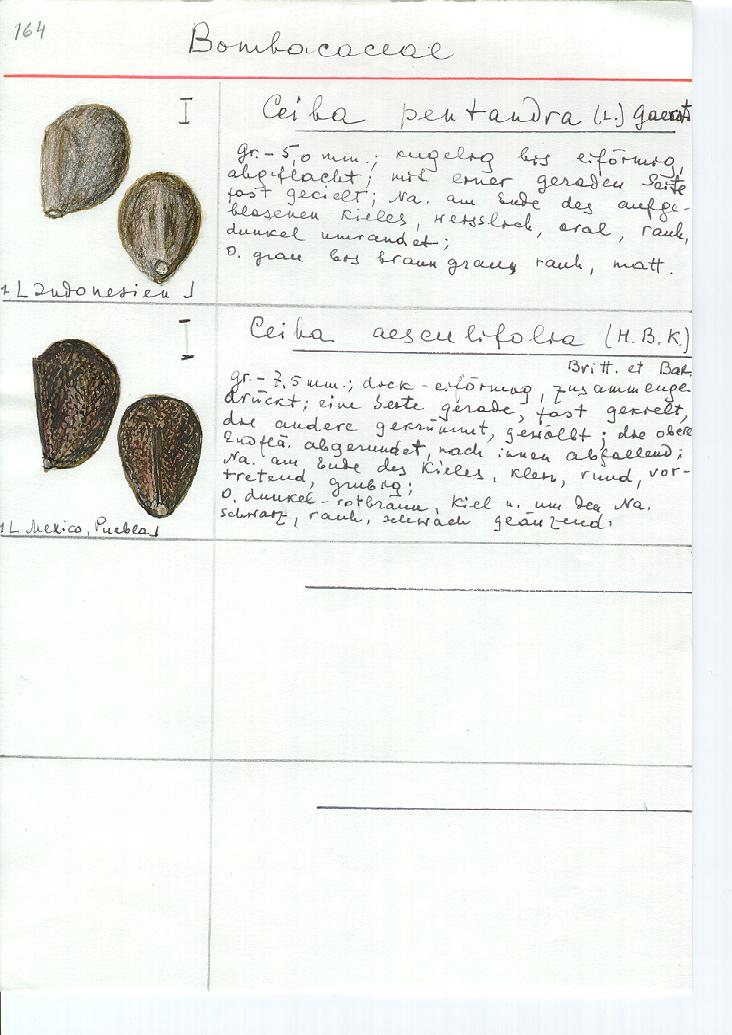 164
Bombacaceae
Ceiba pentandra (L.) Gaertn
gr. - 5,0 mm.; kugelig bis eiförmig,
abgeflacht; mit einer geraden Seite
fast gekielt; Na. am Ende des aufge-
blasenen Kieles, weisslich, oval, rauh,
dunkel umrandet;
O. grau bis braungrau, rauh, matt.
1 L Indonesien
Ceiba aesculifolia (H.B.K)
Britt. et Bak.
gr. - 7,5 mm.; dick-eiförmig, zusammenge-
drückt; eine Seite gerade, fast gekielt,
die andere gekrümmt, gewölbt; die obere
Endflä. abgerundet, nach innen abfallend;
Na. am Ende des Kieles, klein, rund, vor-
tretend, grubig;
O. dunkel-rotbraun, Kiel u. um den Na.
schwarz, rauh, schwach glänzend.
1 L Mexico, Puebla